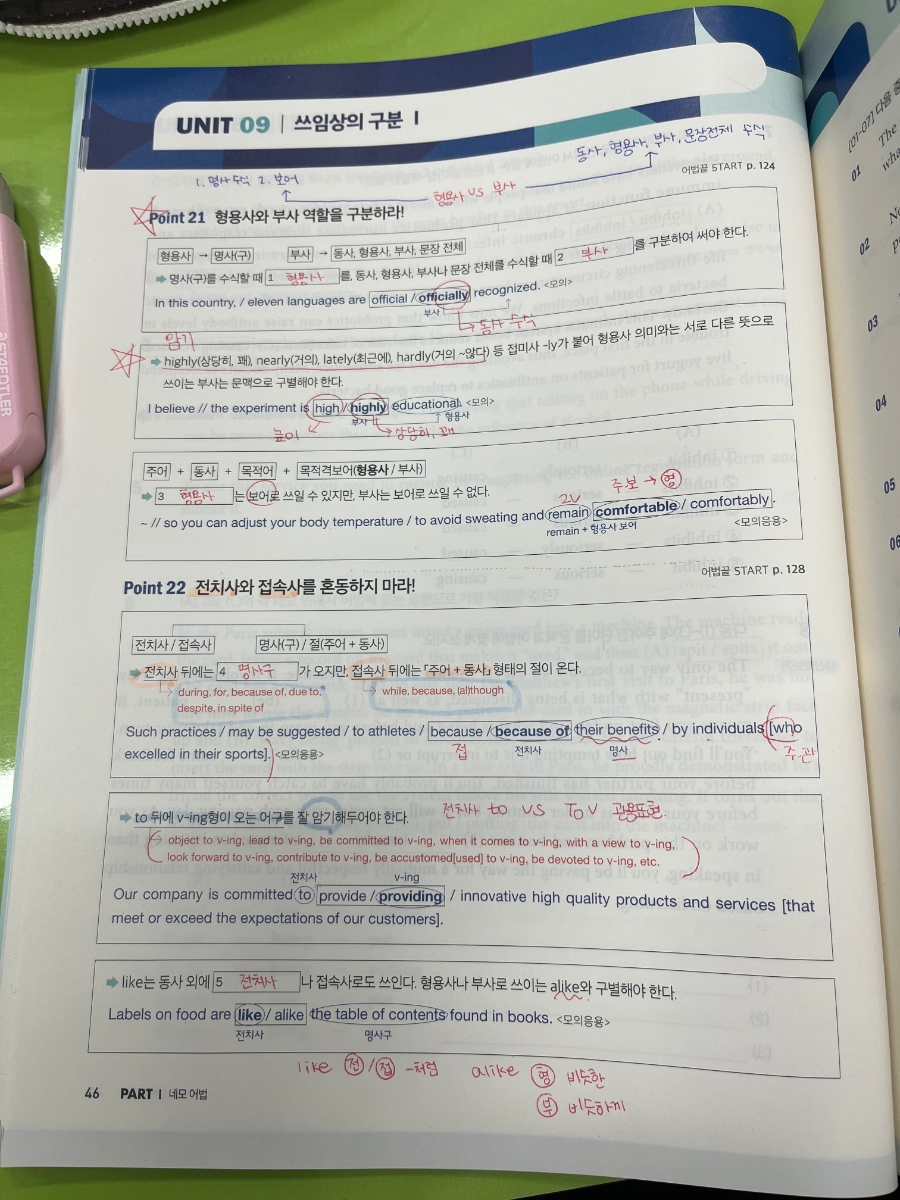 UNIT 09 | 쓰임상의 구분 I
동사, 형용사, 부사, 문장전체 수식
1. 명사 수식 2. 보어
형용사 VS 부사
어법끝 START p. 124
Point 21 형용사와 부사 역할을 구분하라!
형용사 → 명사(구) 부사 → 동사, 형용사, 부사, 문장 전체
➡ 명사(구)를 수식할 때 1 형용사 를, 동사, 형용사, 부사나 문장 전체를 수식할 때 2 부사 를 구분하여 써야 한다.
In this country, / eleven languages are official / officially recognized. <모의>
부사
동사 수식
암기
➡ highly(상당히, 꽤), nearly(거의), lately(최근에), hardly(거의 ~않다) 등 접미사 -ly가 붙어 형용사 의미와는 서로 다른 뜻으로
쓰이는 부사는 문맥으로 구별해야 한다.
I believe // the experiment is high / highly educational. <모의>
부사 형용사
높이 상당히, 꽤
주어 + 동사 + 목적어 + 목적격보어(형용사 / 부사)
➡ 3 형용사 는 보어로 쓰일 수 있지만, 부사는 보어로 쓰일 수 없다.
2V 주보 → 형
~ // so you can adjust your body temperature / to avoid sweating and remain comfortable / comfortably.
remain + 형용사 보어 <모의응용>
어법끝 START p. 128
Point 22 전치사와 접속사를 혼동하지 마라!
전치사 / 접속사 명사(구) / 절(주어 + 동사)
➡ 전치사 뒤에는 4 명사구 가 오지만, 접속사 뒤에는 「주어 + 동사」 형태의 절이 온다.
during, for, because of, due to, while, because, (al)though
despite, in spite of
Such practices / may be suggested / to athletes / because / because of their benefits / by individuals [who
접 전치사 명사 주·관
excelled in their sports]. <모의응용>
➡ to 뒤에 v-ing형이 오는 어구를 잘 암기해두어야 한다. 전치사 to VS To V 관용표현.
object to v-ing, lead to v-ing, be committed to v-ing, when it comes to v-ing, with a view to v-ing,
look forward to v-ing, contribute to v-ing, be accustomed[used] to v-ing, be devoted to v-ing, etc.
전치사 v-ing
Our company is committed to provide / providing / innovative high quality products and services [that
meet or exceed the expectations of our customers].
➡ like는 동사 외에 5 전치사 나 접속사로도 쓰인다. 형용사나 부사로 쓰이는 alike와 구별해야 한다.
Labels on food are like / alike the table of contents found in books. <모의응용>
전치사 명사구
like 전/접 -처럼 alike 형 비슷한
부 비슷하게
46 PART I 네모 어법
STAEDTLER
[01-07] 다음
01 The
02
03
04
05
06